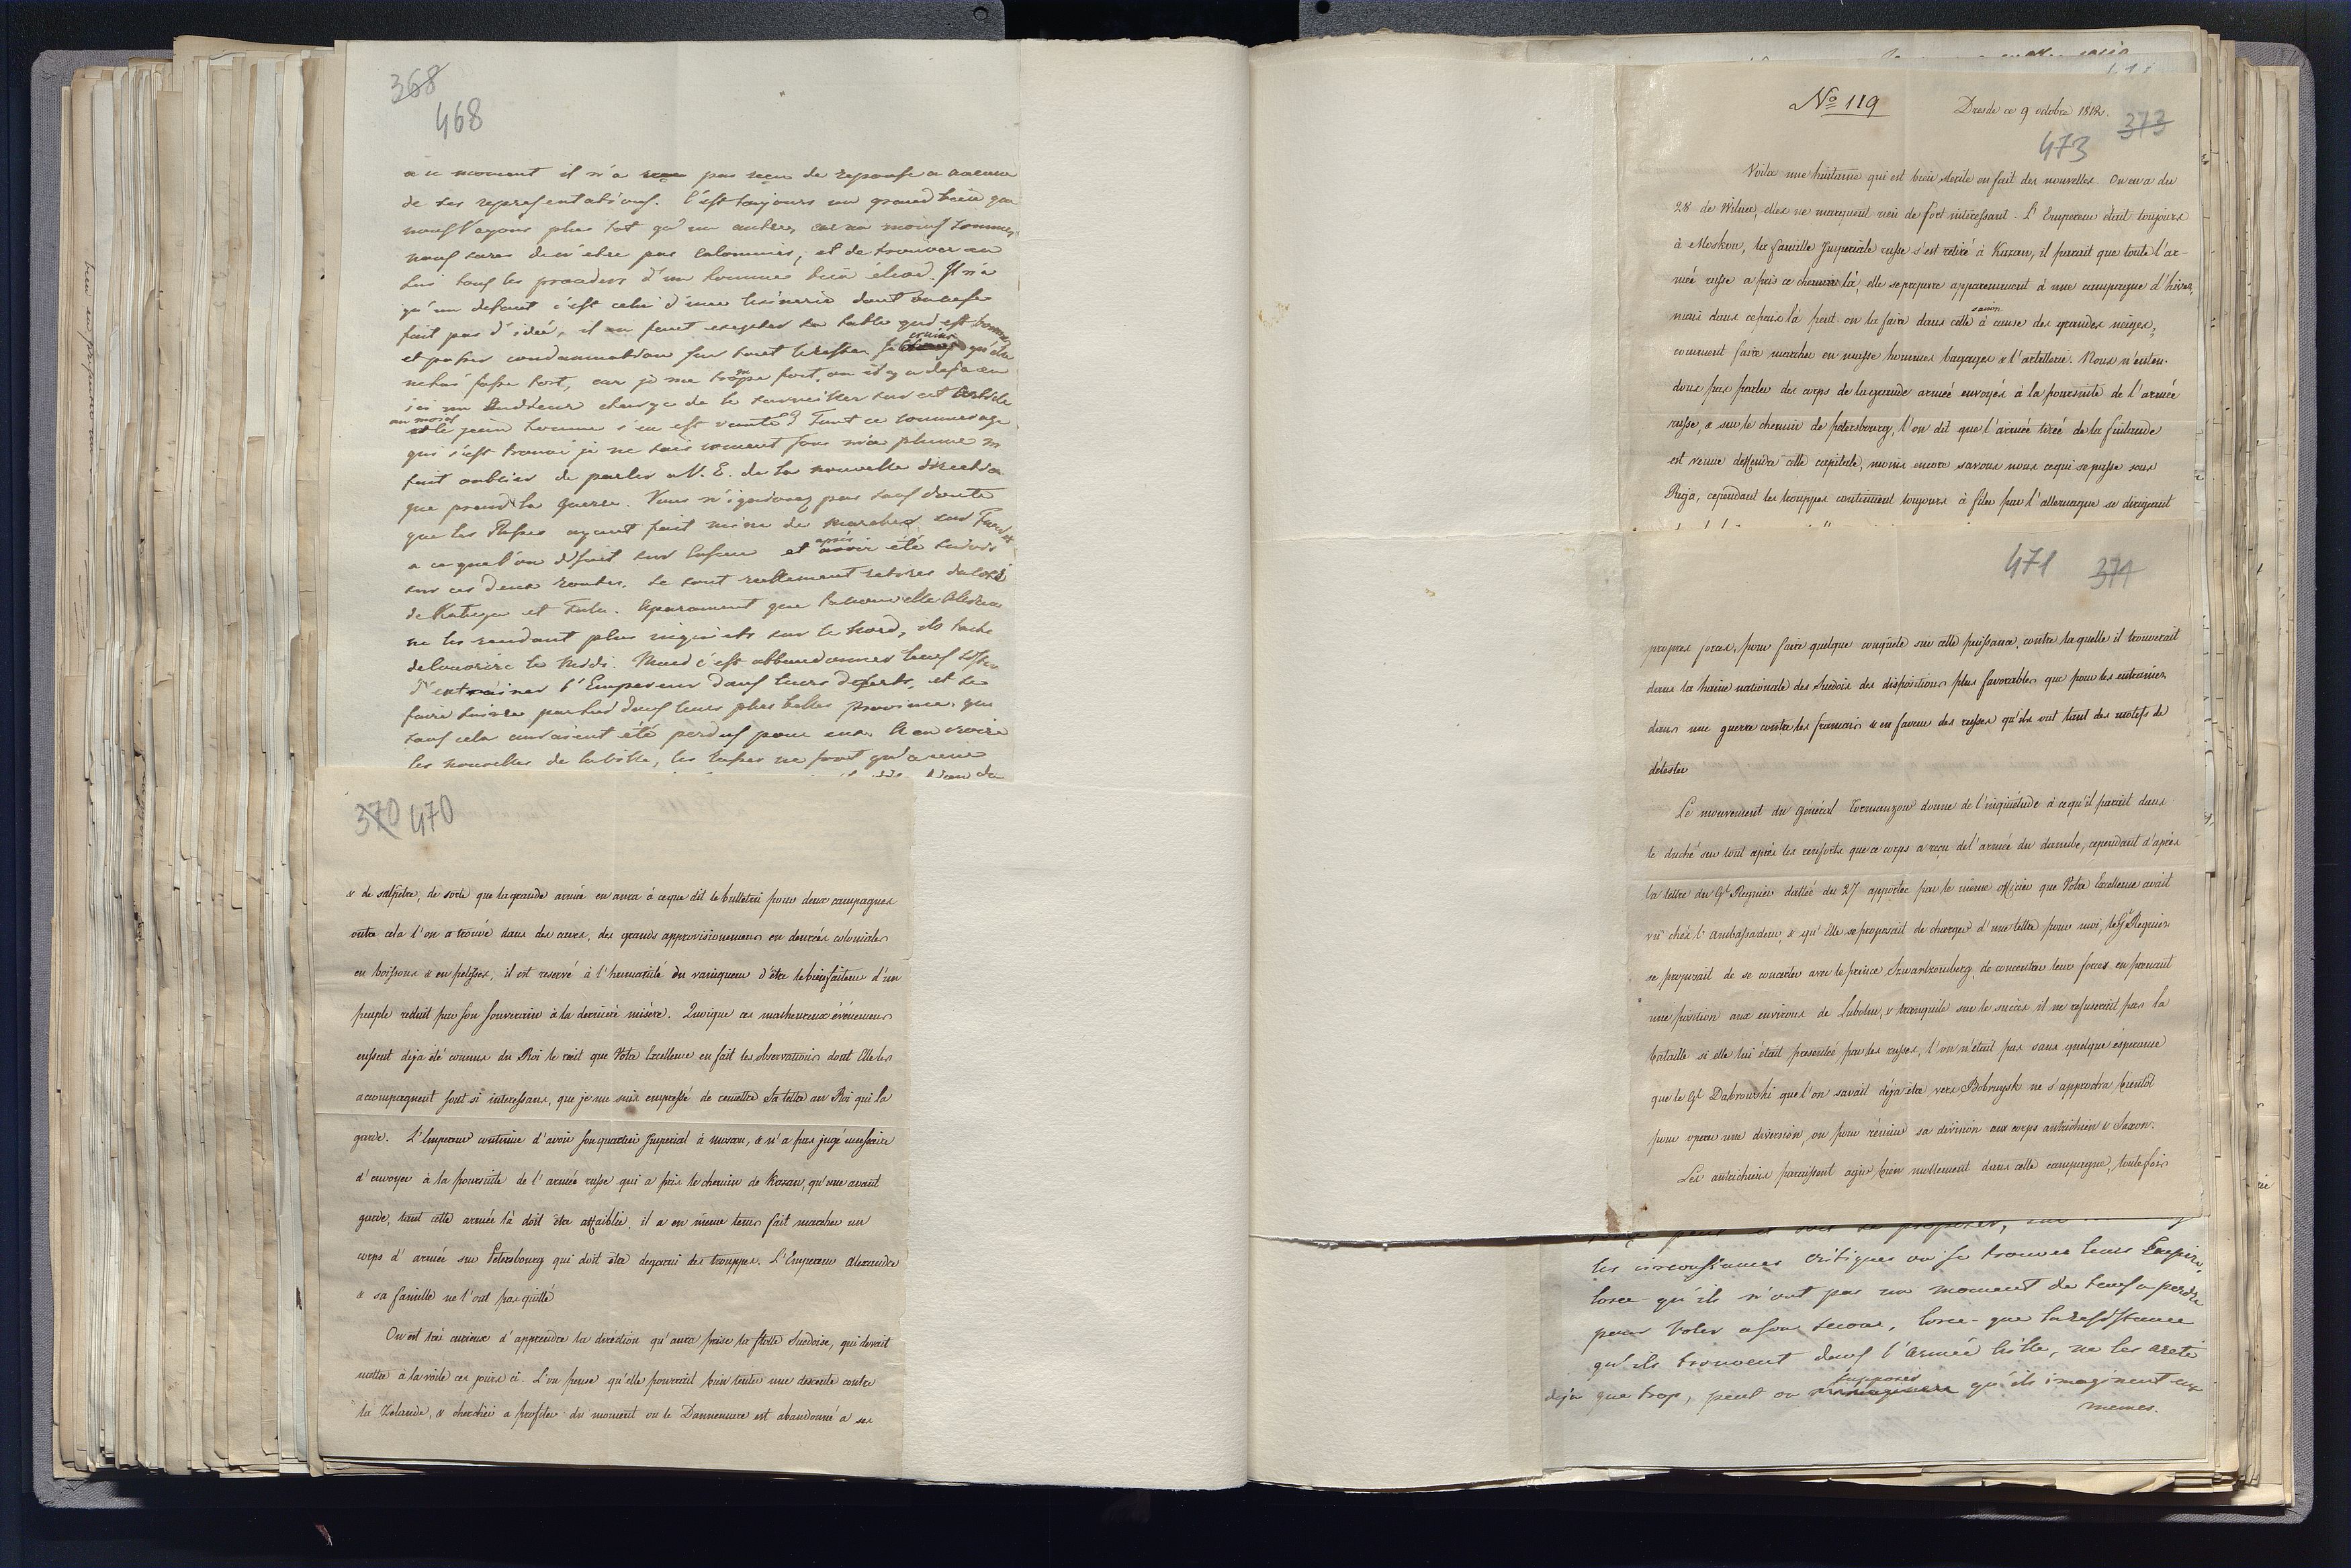 368
468
a ce moment il n'a pas reçu de reponse a aucune
de ses representations. C'est toujours un grand bien que
nous l'ayons plus tot qu'un autre, car au moins sommes
nous sures de n'etre pas calomnies, et de trouver en
lui tous les procedes d'un homme bien élevé. Il n'a
qu'un defaut c'est celui d'une lesinerie dont on ne se
fait pas d'idée, il en faut excepter sa table qui est bonne
et passer condamnation sur tout le reste. Je crains qu'elle
ne lui fasse tort, car je me trompe fort, ou il y a deja eu
ici un Auditeur charge de le surveiller sur cet article
au moins le jeune homme s'en est vanté? Tout ce commerage
qui s'est trouvé je ne sais coment sous ma plume m'a
fait oublier de parler a V. E. de la nouvelle direction
que prend la guerre. Vous n'ignorez pas sans doute
que les Russes ayant fait mine de marcher sur
a ce que l'on disait sur Casan et après avoir été suivis
sur ces deux routes, se sont reellement retires du coté
de Kaluga et Tula. Aparament que
ne les rendant plus inquiets sur le Nord, ils tache
de couvrire le Midi. Mais c'est abbandonner leur
d'entrainer l'Empereur dans leurs deserts, et se
faire suivre par lui dans leurs plus belles province, qui
sans cela auraient été perdus pour eux. A en croire
les nouvelles de la ville, les Russes ne font qu'a
370 470
& de salpetre, de sorte que la grande armée en aura à ceque dit le bulletin pour deux campagnes
outre cela l'on a trouvé dans des caves, des grands approvisionemens en denrées coloniales
en boissons & en pelisses, il est reservé à l'humanité du vainqueur d'être le bienfaiteur d'un
peuple reduit par son souverain à la derniere misère. Quoique ces malheureux événemens
eussent deja été connus du Roi le recit que Votre Excellence en fait les observations dont Elle les
accompagnent sont si interessans, que je me suis empressé de remettre Sa lettre au Roi qui la
garde. L'Empereur continue d'avoir son quartier Imperial à Moscou, & n'a pas jugé necessaire
d'envoyer à la poursuite de l'armée russe qui a pris le chemin de Kazan, qu'une avant
garde, tant cette armée là doit être affaiblie, il a en meme tems fait marcher un
corps d'armée sur Petersbourg qui doit être degarni des trouppes. L'Empereur Alexandre
& sa famille ne l'ont pas quitté
On est très curieux d'apprendre la direction qu'aura prise la flotte Suedoise, qui devait
mettre à la voile ces jours ci. L'on pense qu'elle pourrait bien tenter une descente contre
la Zelande, & chercher a profiter du moment ou le Dannemarc est abandonné a ses
No 119
Dresde ce 9 octobre 1812.
373
473
Voila une huitaine qui est bien sterile en fait des nouvelles. On en a du
28 de Wilna, elles ne marquent rien de fort intéressant. L'Empereur était toujours
à Moskou, la famille Imperiale russe s'est retiré à Kazan, il parait que toute l'ar-
mée russe a pris ce chemin là, elle se prepare apparemment à une campagne d'hiver,
mais dans ce pais là peut on la faire dans cette saison à cause des grandes neiges,
comment faire marcher en masse hommes bagages & l'artillerie. Nous n'enten-
dons pas parler des corps de la grande armée envoyés à la poursuite de l'armée
russe, & sur le chemin de petersbourg, l'on dit que l'armée tirée de la finlande
est venue deffendre cette capitale, moins encore savons nous ce qui se passe sous
Riga, cependant les trouppes continuent toujours à filer par l'allemagne se dirigeant
471 371
propres forces, pour faire quelque conquete sur cette puissance, contre laquelle il trouverait
dans la haine nationale des Suedois des dispositions plus favorables que pour les entrainer
dans une guerre contre les francais & en faveur des russes qu'ils ont tant des motifs de
détester
Le mouvement du général Tormanzow donne de l'inquiétude à ce qu'il parait dans
le duché sur tout après les renforts que ce corps a reçu de l'armée du danube, cependant d'après
la lettre du Gl Regnier dattée du 27 apportée par le même officier que Votre Excellence avait
vu chés l'ambassadeur, & qu'Elle se proposait de charger d'une lettre pour moi, le Gl Regnier
se proposait de se concerter avec le prince Szwartzenberg, de concentrer leur forces en prenant
une position aux environs de Lubolm, & tranquile sur le succès il ne refuserait pas la
bataille si elle lui était presentée par les russes, l'on n'était pas sans quelque espérance
que le Gl Dabrowski que l'on savait déja être vers Bobruysk ne s'approcha bientot
pour operer une diversion, ou pour réunir sa division aux corps autrichien & Saxon.
Les autrichiens paraissent agir bien mollement dans cette campagne, toutefois
les circonstances critiques ou se trouve leur Empire,
lorce-qu'ils n'ont pas un moment de tems a perdre
pour voler a son secour, lorce-que la resistance
qu'ils trouvent dans l'armée ne les arete
deja que trop, peut on supposer qu'ils imaginent eux
memes.